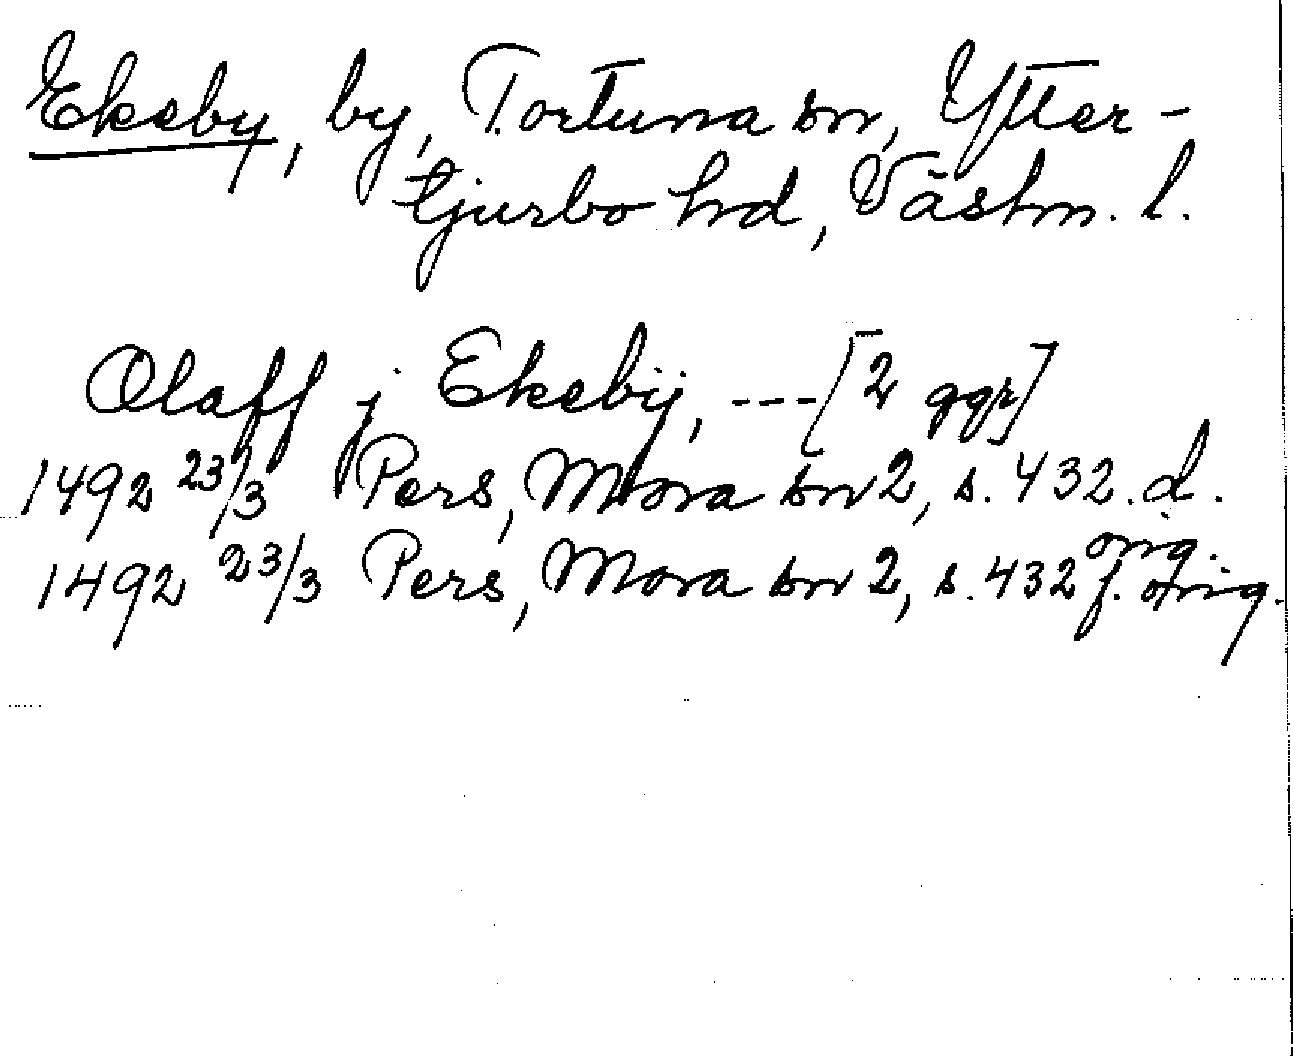 Ekeby, by, Tortuna sn, Ytter-
tjurbo hd, Västm. l.
Olaff j Ekebÿ, --- [2 ggr]
1492 23/3 Pers, Mora sn 2, s. 432. d.
orig.
1492 23/3 Pers, Mora sn 2, s. 432 f. orig.